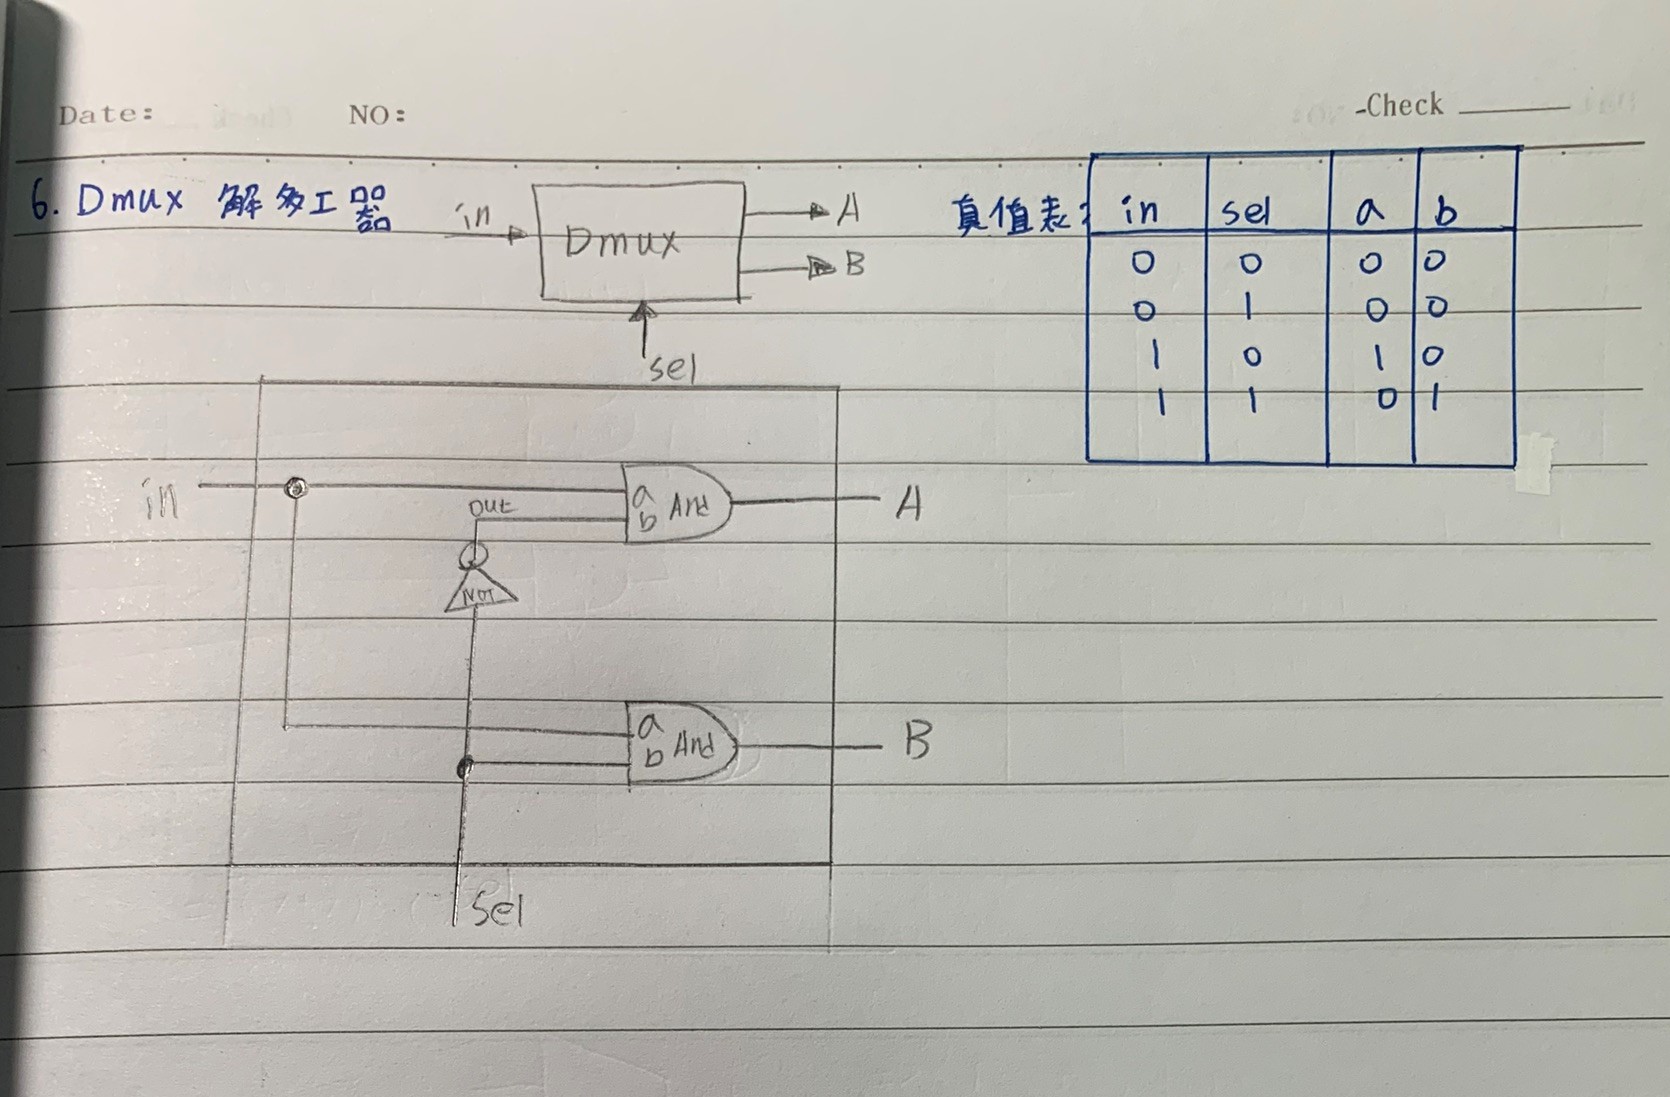 Date: NO: -Check
6. Dmux 解多工器
in
Dmux
A
B
sel
真值表:
in sel a b
0 0 0 0
0 1 0 0
1 0 1 0
1 1 0 1
in
out
a
b
And
A
NOT
a
b
And
B
Sel